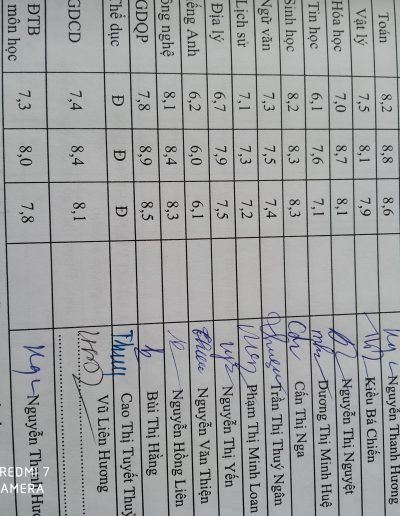 Toán 8,2 8,8 8,6 Nguyễn Thanh Hương
Vật lý 7,5 8,1 7,9 Kiều Bá Chiến
Hóa học 7,0 8,7 8,1 Nguyễn Thị Nguyệt
Tin học 6,1 7,6 7,1 Dương Thị Minh Huệ
Sinh học 8,2 8,3 8,3 Cấn Thị Nga
Ngữ văn 7,3 7,5 7,4 Trần Thị Thuý Ngân
Lịch sử 7,1 7,3 7,2 Phạm Thị Minh Loan
Địa lý 6,7 7,9 7,5 Nguyễn Thị Yến
iếng Anh 6,2 6,0 6,1 Nguyễn Văn Thiện
ông nghệ 8,1 8,4 8,3 Nguyễn Hồng Liên
GDQP 7,8 8,9 8,5 Bùi Thị Hằng
hể dục Đ Đ Đ Cao Thị Tuyết Thuỷ
GDCD 7,4 8,4 8,1 Vũ Liên Hương
ĐTB
môn học 7,3 8,0 7,8 Nguyễn Th Hư
REDMI 7
CAMERA